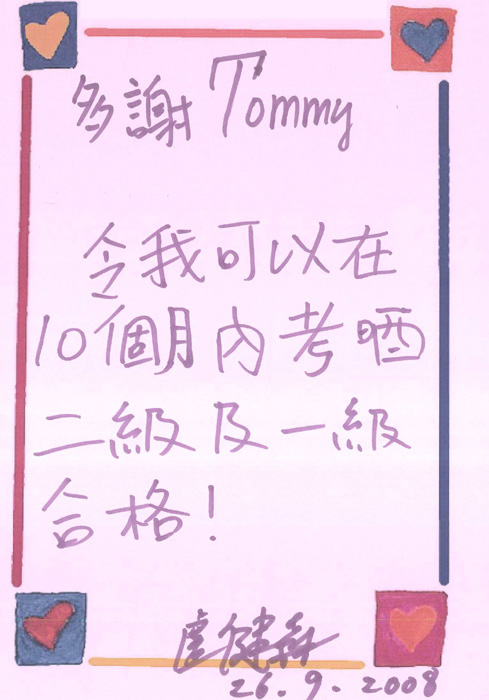 多謝 Tommy
令我可以在
10個月內考晒
二級及一級
合格!
盧健森
26.9.2008